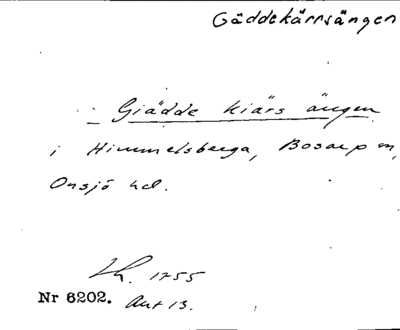 Gäddekärrsängen
Giädde kiärs ängen
i Himmelsberga, Bosarp sn,
Onsjö hd.
Lh. 1755
Nr 6202. Akt 13.